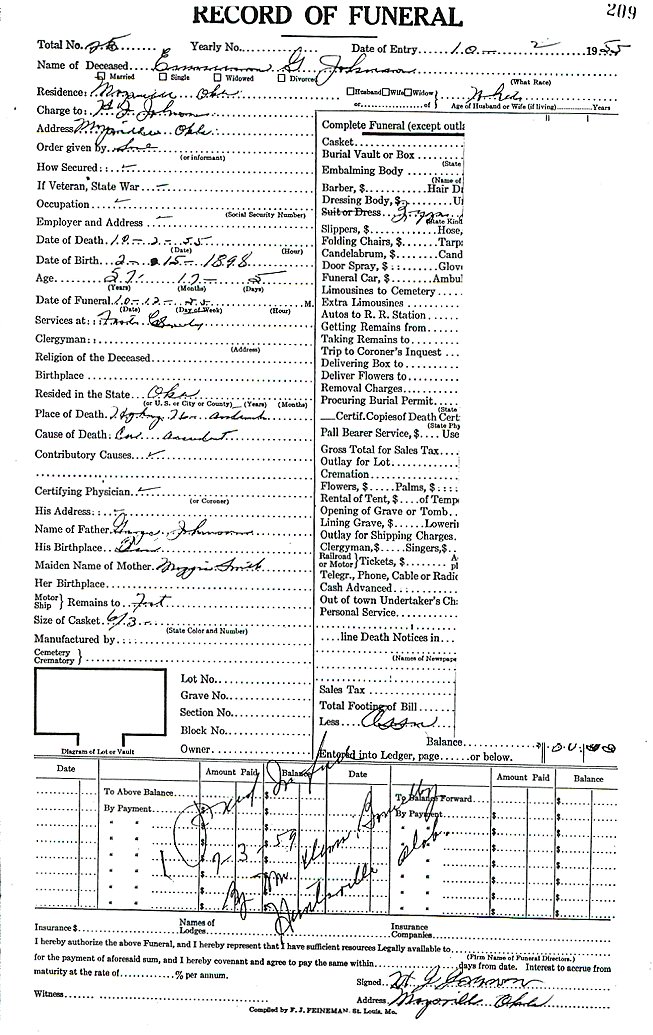 RECORD OF FUNERAL
209
Total No. 25 Yearly No. Date of Entry 10 - 2 1955
Name of Deceased G. Johnson
Married Single Widowed Divorced (What Race)
Residence: Okla Husband Wife Widow
or of Age of Husband or Wife (if living) Years
Charge to: Johnson
Address Maysville Okla.
Order given by
(or informant)
How Secured:
If Veteran, State War
Occupation
(Social Security Number)
Employer and Address
Date of Death 10 - 2 - 55
(Date) (Hour)
Date of Birth 2 - 15 - 1898
Age 57 17 5
(Years) (Months) (Days)
Date of Funeral 10 - 12 - 55 M.
(Date) (Day of Week) (Hour)
Services at:
Clergyman:
(Address)
Religion of the Deceased
Birthplace
Resided in the State Okla
(or U. S. or City or County) (Years) (Months)
Place of Death
Cause of Death: Car accident
Contributory Causes
Certifying Physician
(or Coroner)
His Address:
Name of Father George Johnson
His Birthplace
Maiden Name of Mother Maggie Smith
Her Birthplace
Motor
Ship } Remains to
Size of Casket 6/3
(State Color and Number)
Manufactured by
Cemetery
Crematory }
Complete Funeral (except outla
Casket
Burial Vault or Box
(State
Embalming Body
(Name of
Barber, $ Hair Dr
Dressing Body, $ U
Suit or Dress
(State Kind
Slippers, $ Hose,
Folding Chairs, $ Tarp
Candelabrum, $ Cand
Door Spray, $ Glov
Funeral Car, $ Ambu
Limousines to Cemetery
Extra Limousines
Autos to R. R. Station
Getting Remains from
Taking Remains to
Trip to Coroner's Inquest
Delivering Box to
Deliver Flowers to
Removal Charges
Procuring Burial Permit
(State
Certif. Copies of Death Cert
(State Phy
Pall Bearer Service, $ Use
Gross Total for Sales Tax
Outlay for Lot
Cremation
Flowers, $ Palms, $
Rental of Tent, $ of Temp
Opening of Grave or Tomb
Lining Grave, $ Loweri
Outlay for Shipping Charges
Clergyman, $ Singers, $
Railroad
or Motor } Tickets, $ A
pl
Telegr., Phone, Cable or Radio
Cash Advanced
Out of town Undertaker's Ch
Personal Service
line Death Notices in
(Names of Newspape
Sales Tax
Total Footing of Bill
Less Assn
Balance $
Entered into Ledger, page or below.
Lot No.
Grave No.
Section No.
Block No.
Owner
Diagram of Lot or Vault
Date Amount Paid Balance Date Amount Paid Balance
To Above Balance $ $ To Balance Forward $
By Payment $ $ By Payment $ $
Paid in full
9 - 3 - 59
By Wm
Huntsville Ala.
Insurance $ Names of Lodges Insurance Companies
I hereby authorize the above Funeral, and I hereby represent that I have sufficient resources Legally available to
(Firm Name of Funeral Directors.)
for the payment of aforesaid sum, and I hereby covenant and agree to pay the same within days from date. Interest to accrue from
maturity at the rate of % per annum.
Signed Johnson
Witness Address Maysville Okla
Compiled by F. J. FEINEMAN, St. Louis, Mo.